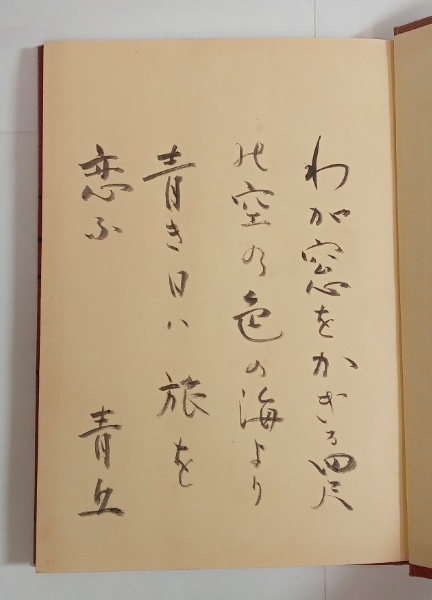 わが窓をかぎる四尺
の空の色の海より
青き日ハ旅を
恋ふ 青丘